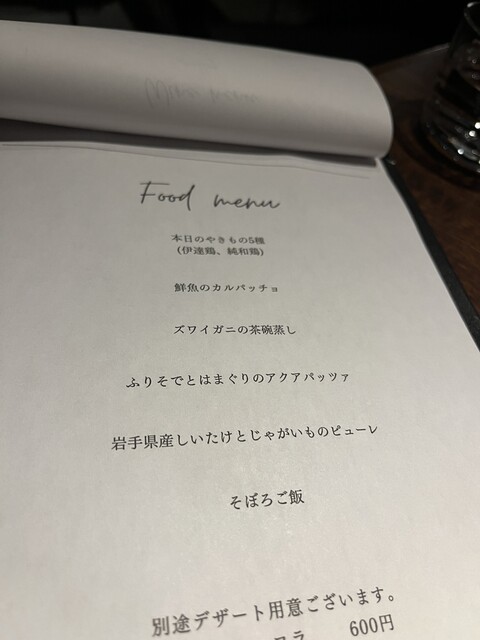 Food menu
本日のやきもの5種
(伊達鶏、純和鶏)
鮮魚のカルパッチョ
ズワイガニの茶碗蒸し
ふりそでとはまぐりのアクアパッツァ
岩手県産しいたけとじゃがいものピューレ
そぼろご飯
別途デザート用意ございます。
600円